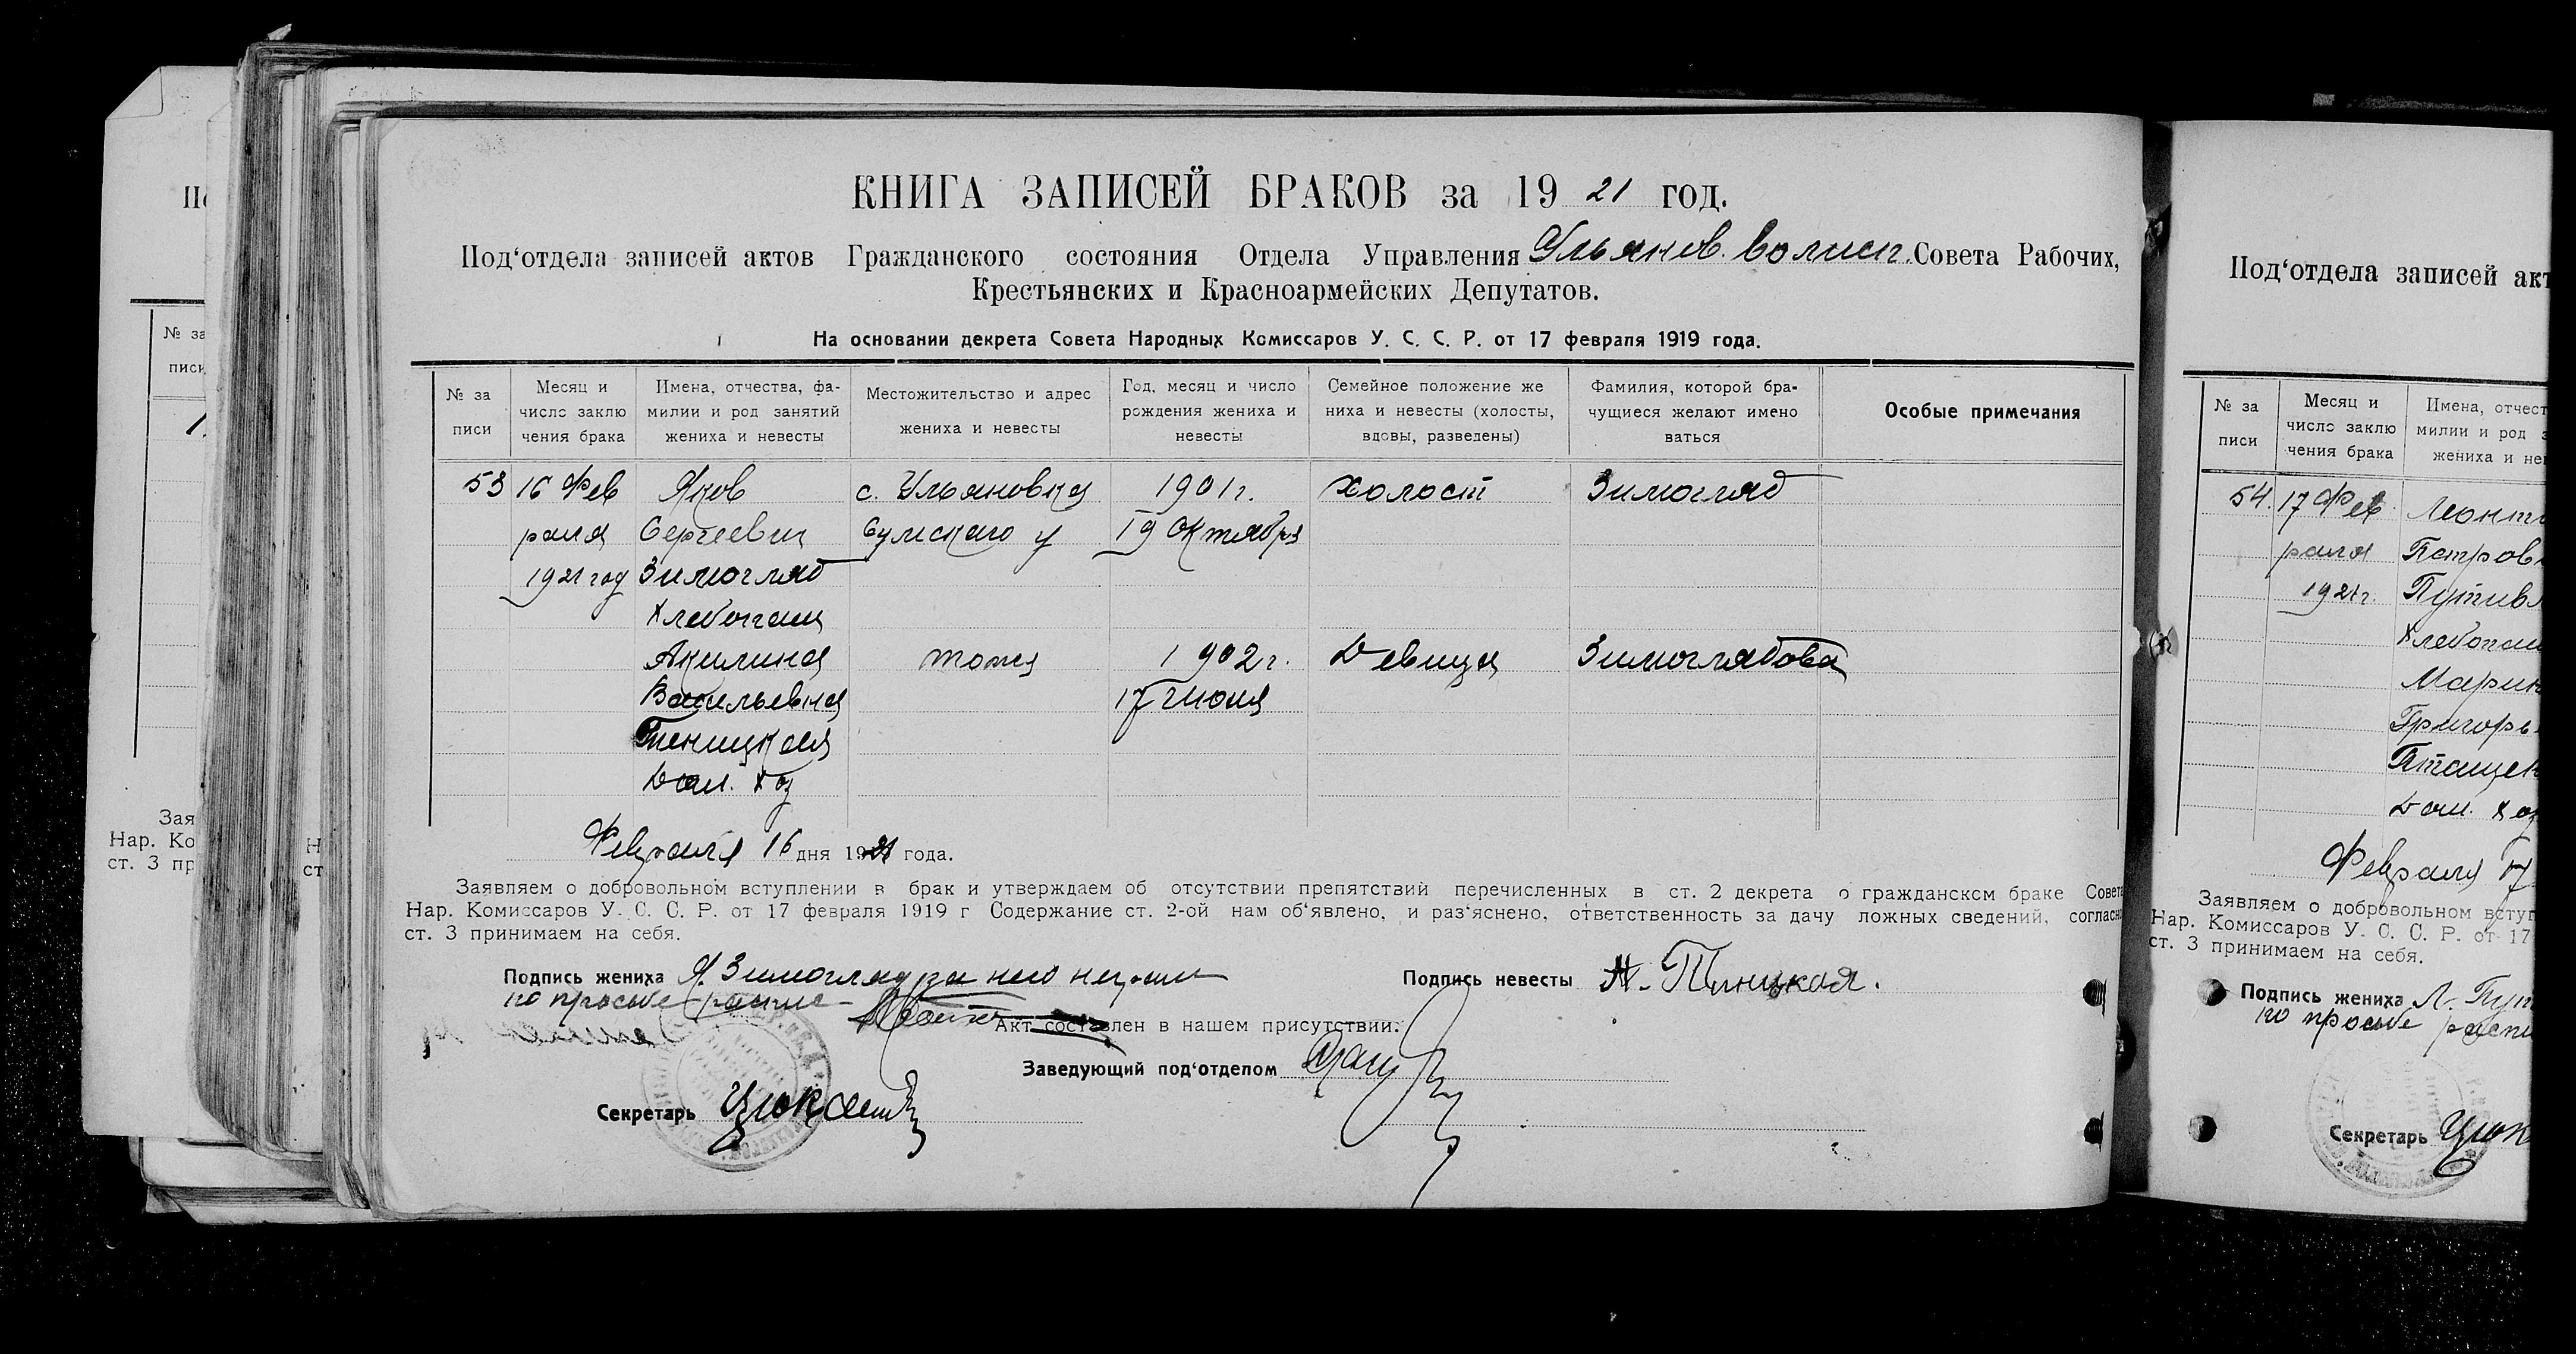 КНИГА ЗАПИСЕЙ БРАКОВ за 1921 год.
Под‘отдела записей актов Гражданского состояния Отдела Управления Ульянов. волисп. Совета Рабочих,
Крестьянских и Красноармейских Депутатов.
На основании декрета Совета Народных Комиссаров У. С. С. Р. от 17 февраля 1919 года.
№ за
писи
Месяц и
число заклю
чения брака
Имена, отчества, фа-
милии и род занятий
жениха и невесты
Местожительство и адрес
жениха и невесты
Год, месяц и число
рождения жениха и
невесты
Семейное положение же
ниха и невесты (холосты,
вдовы, разведены)
Фамилия, которой бра-
чущиеся желают имено
ваться
Особые примечания
53 16 Фев Яков с. Ульяновка 1901 г. холост Зимогляд
раля Сергеевич Сумского у 19 Октября
1921 год Зимогляд
Хлебопаш
Акилина тоже 1902 г. Девица Зимоглядова
Васильевна 17 Июня
Дом. хоз
Февраля 16 дня 1921 года.
Заявляем о добровольном вступлении в брак и утверждаем об отсутствии препятствий перечисленных в ст. 2 декрета о гражданском браке Совета
Нар. Комиссаров У. С. С. Р. от 17 февраля 1919 г Содержание ст. 2-ой нам об‘явлено, и раз‘яснено, ответственность за дачу ложных сведений, согласно
ст. 3 принимаем на себя.
Подпись жениха Я. Зимогляд за него неграм
по просьбе распис
Подпись невесты А.
Акт составлен в нашем присутствии.
Заведующий под‘отделом
Секретарь
Под‘отдела записей акт
№ за
писи
Месяц и
число заклю
чения брака
Имена, отчест
милии и род з
жениха и не
54. 17 Фев Леонти
раля Петров
1921 г. Путивл
Хлебопаш
Марин
Григорь
Дом. хоз
Февраля 17
Заявляем о добровольном вступ
Нар. Комиссаров У. С. С. Р. от 17
ст. 3 принимаем на себя.
Подпись жениха Л. Пут
по просьбе распи
Секретарь
№ за
писи
Зая
Нар. Ко
ст. 3 пр